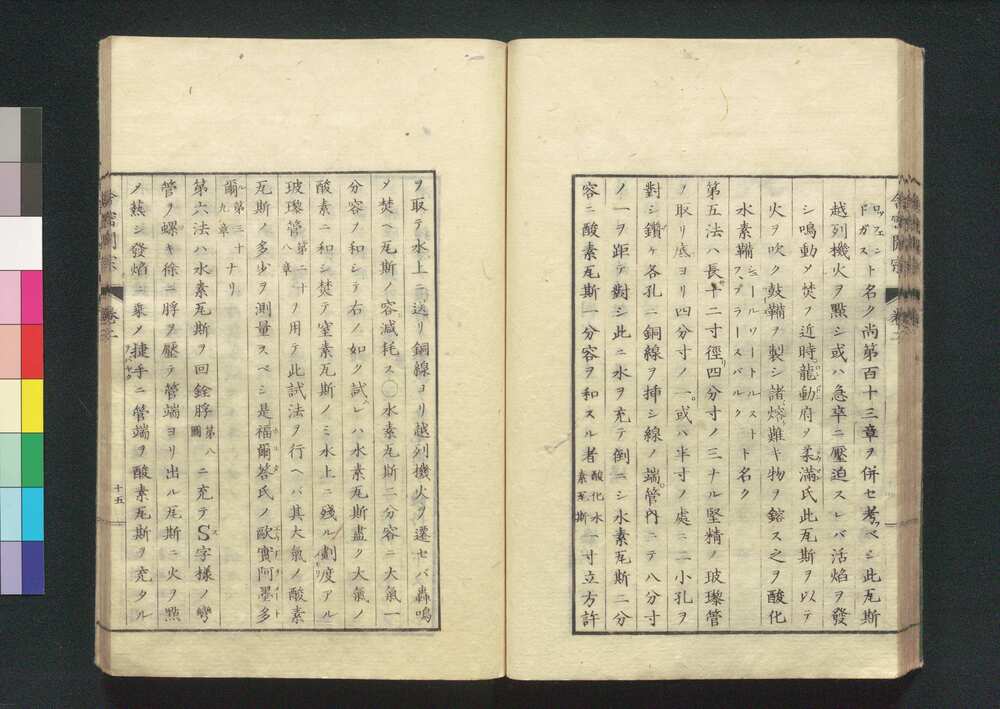 ロッフェント名ク尚第百十三章ヲ併セ考フベシ此瓦斯
ドガス
越列機火ヲ點シ或ハ急卒ニ壓迫スレバ活焰ヲ發
シ鳴動メ焚フ近時龍動府ヲ柔滿氏此瓦斯ヲ以テ
火ヲ吹ク鼓鞴ヲ製シ諸熔難キ物ヲ鎔ス之ヲ酸化
水素鞴ト名ク
第五法ハ長十二寸徑四分寸ノ三ナル堅精ノ玻瓈管
ヲ取リ底ヨリ四分寸ノ一或ハ半寸ノ處ニ二小孔ヲ
對シ鑽ケ各孔ニ銅線ヲ挿シ線ノ端管內ニテ八分寸
ノ一ヲ距テ對シ此ニ水ヲ充テ倒ニシ水素瓦斯二分
容ニ酸素瓦斯一分容ヲ和スル者酸化水素瓦斯一寸立方許
ヲ取テ水上ニ送リ銅線ヨリ越列機火ヲ遷セバ轟鳴
メ焚ヘ瓦斯ノ容減耗ス〇水素瓦斯二分容ニ大氣一
分容ヲ和シテ右ノ如ク試レハ水素瓦斯盡ク大氣ノ
酸素ニ和シ焚テ窒素瓦斯ノミ水上ニ殘ル劃度アル
玻瓈管第二十八章ヲ用テ此試法ヲ行ヘバ其大氣ノ酸素
瓦斯ノ多少ヲ測量スベシ是福爾荅氏ノ歐實阿墨多
爾第三十九章ナリ
第六法ハ水素瓦斯ヲ回銓脬第八圖ニ充テS字樣ノ彎
管ヲ螺キ徐ニ脬ヲ壓テ管端ヨリ出ル瓦斯ニ火ヲ點
メ爇シ發焰ニ乘メ捷手ニ管端ヲ酸素瓦斯ヲ充タル
十五